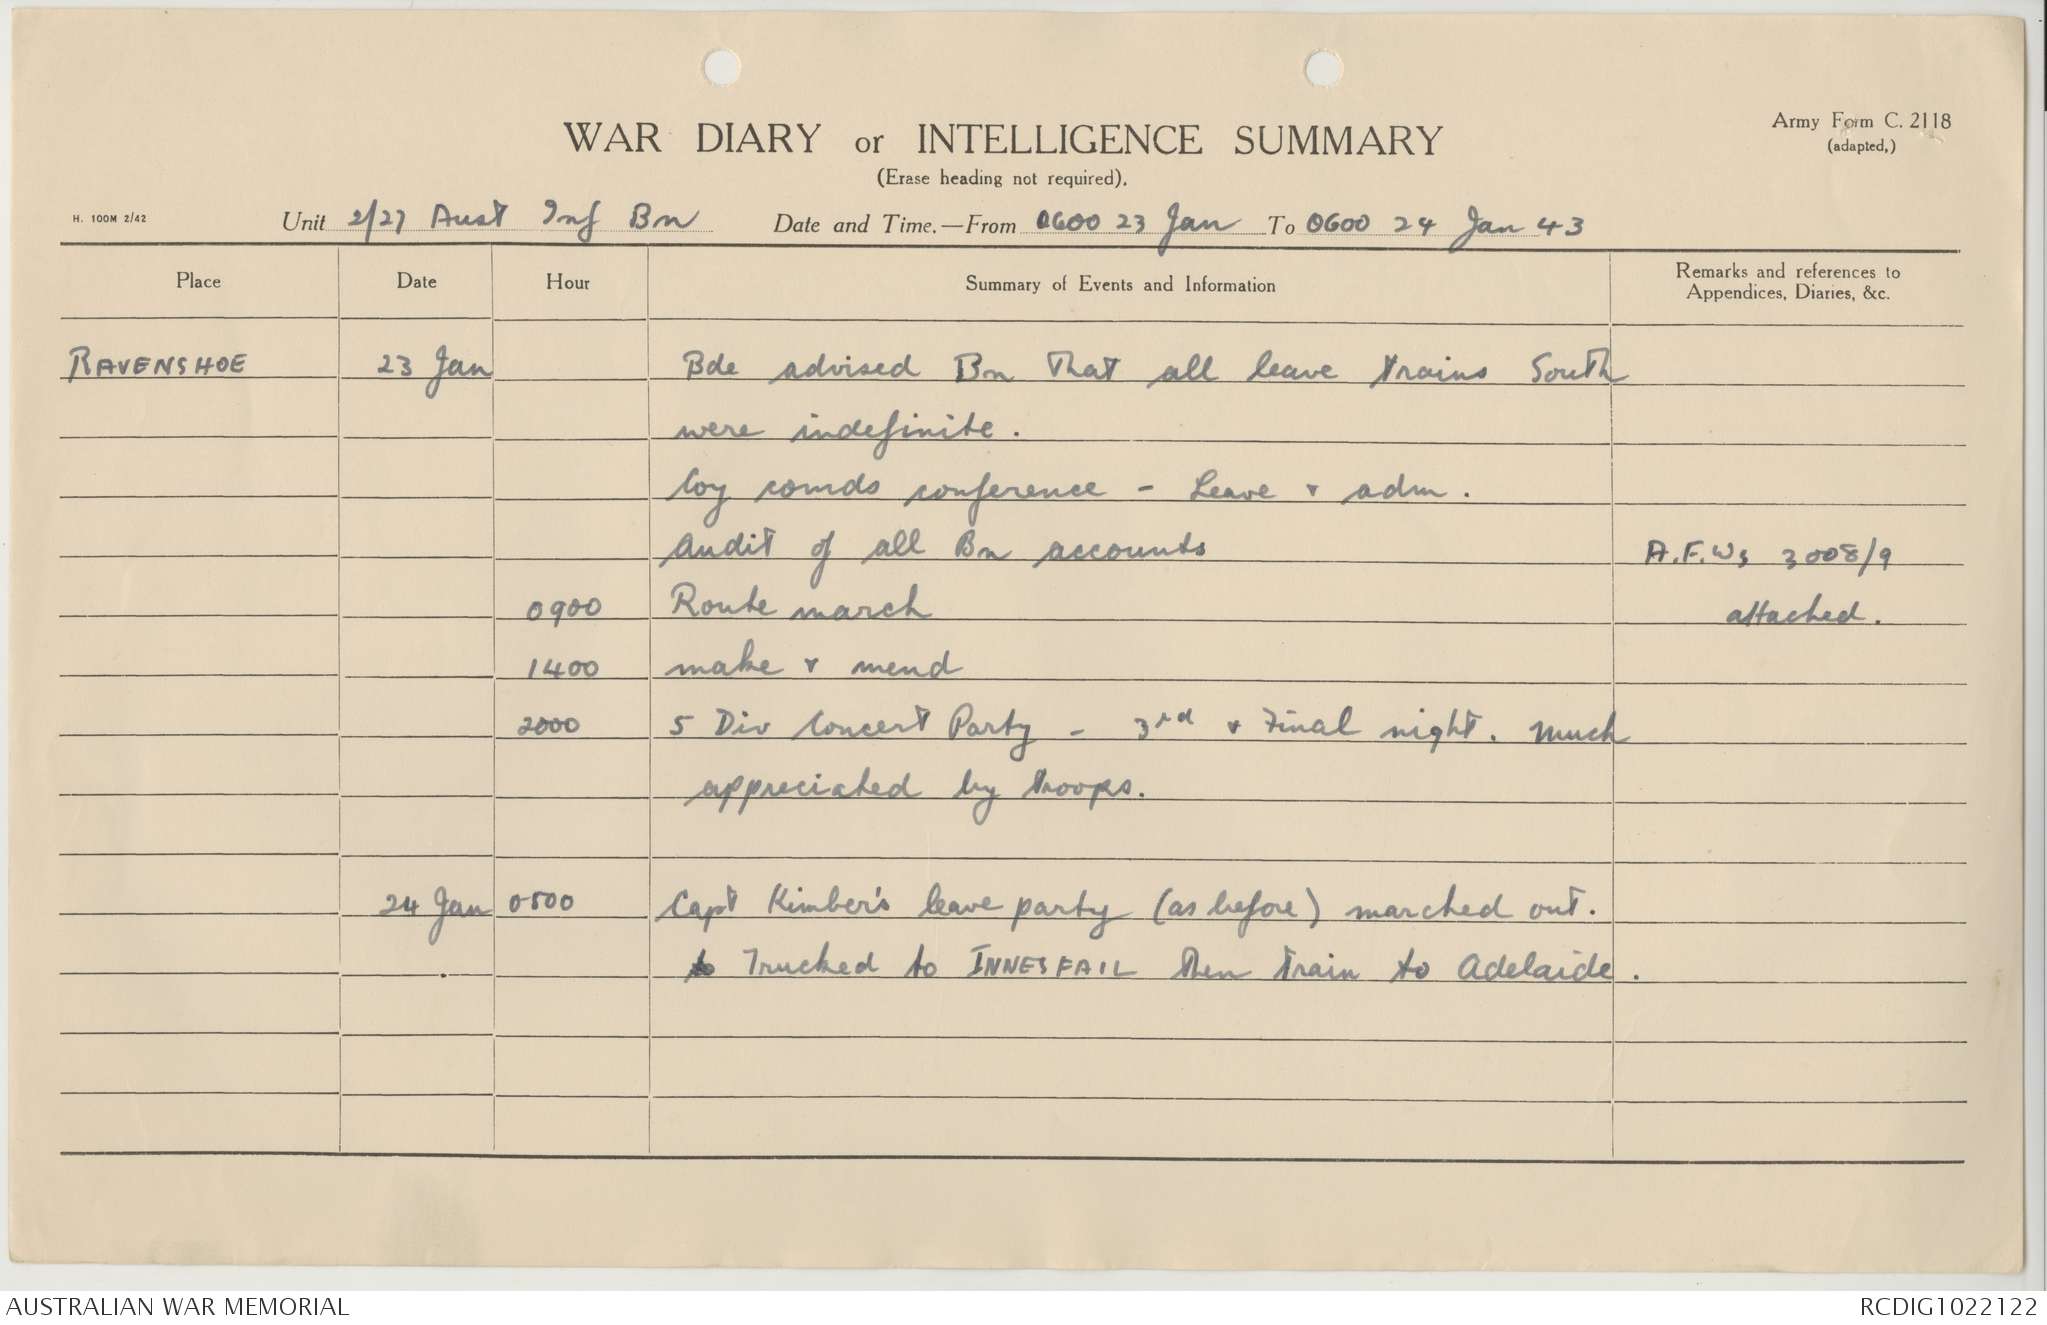 WAR DIARY or INTELLIGENCE SUMMARY
Army Form C. 2118
(adapted,)
(Erase heading not required).
H. 100M 2/42
Unit 2/27 Aust Inf Bn Date and Time.—From 0600 23 Jan To 0600 24 Jan 43
Place Date Hour Summary of Events and Information Remarks and references to
Appendices, Diaries, &c.
RAVENSHOE 23 Jan Bde advised Bn that all leave trains South
were indefinite.
Coy comds conference - Leave & adm.
Audit of all Bn accounts A.F.Ws 3008/9
0900 Route march attached.
1400 make & mend
2000 5 Div Concert Party - 3rd & Final night. Much
appreciated by troops.
24 Jan 0500 Capt Kimber's leave party (as before) marched out.
to Trucked to INNESFAIL then train to Adelaide.
AUSTRALIAN WAR MEMORIAL RCDIG1022122